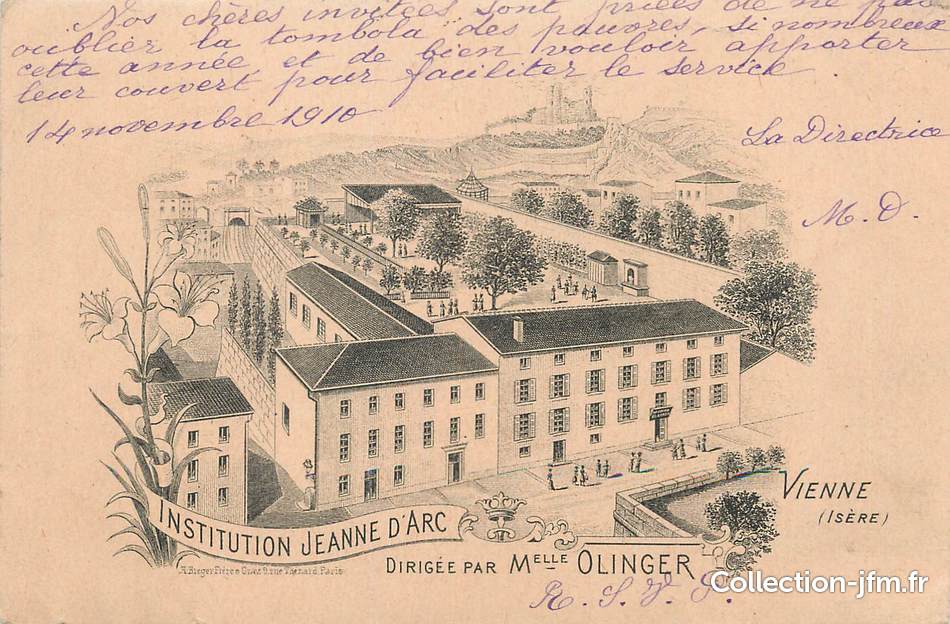 Nos chères invitées sont priées de ne pas
oublier la tombola des pauvres, si nombreux
cette année et de bien vouloir apporter
leur couvert pour faciliter le service.
14 novembre 1910
La Directrice
M. D.
VIENNE
(ISÈRE)
INSTITUTION JEANNE D'ARC
DIRIGÉE PAR MELLE OLINGER
Paris
R. S. V. P.
Collection-jfm.fr